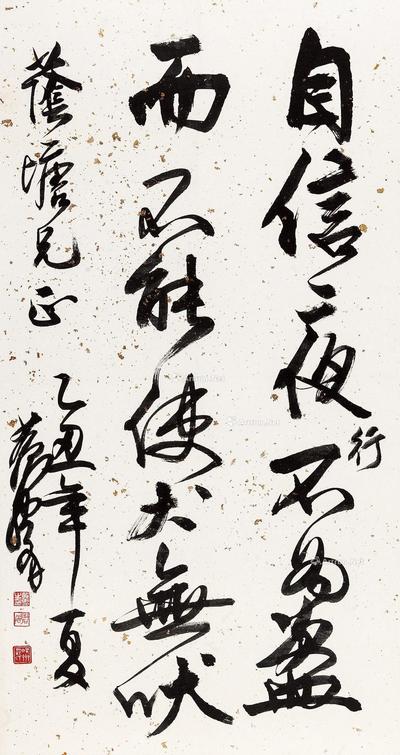 自信夜行不为盗
而不能使犬無吠
蔭塘兄正
乙丑年夏